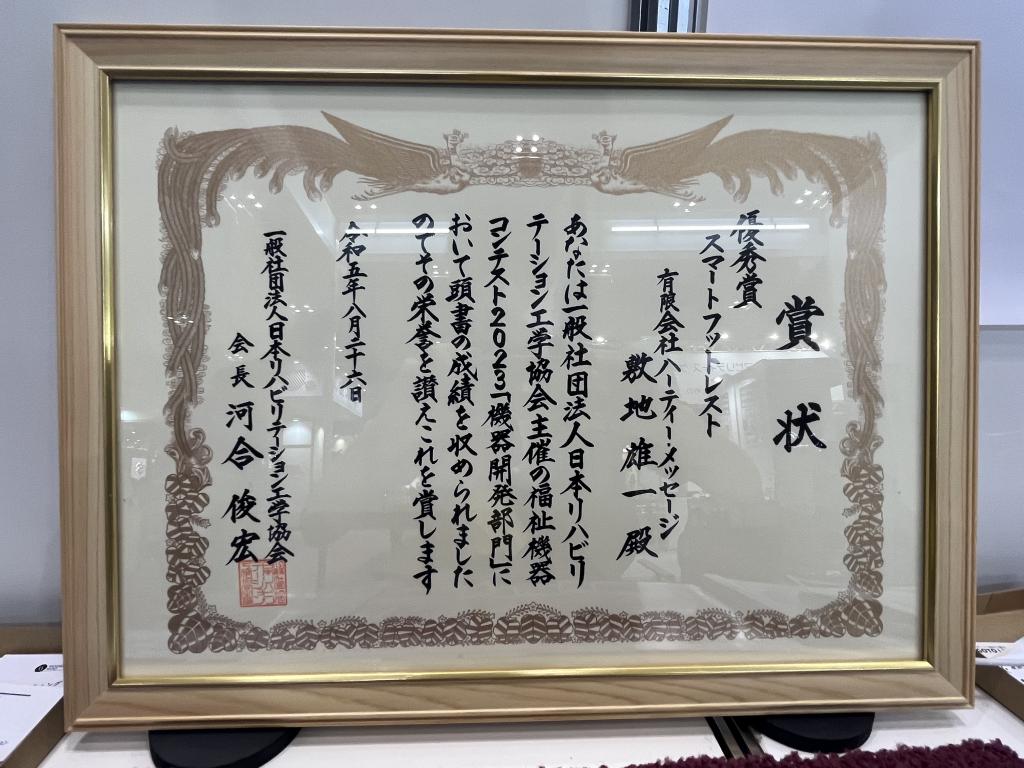 賞状
優秀賞
スマートフットレスト
有限会社ハーティーメッセージ
敷地雄一殿
あなたは一般社団法人日本リハビリ
テーション工学協会主催の福祉機器
コンテスト2023「機器開発部門」に
おいて頭書の成績を収められました
のでその栄誉を讃えこれを賞します
令和五年八月二十六日
一般社団法人日本リハビリテーション工学協会
会長 河合俊宏